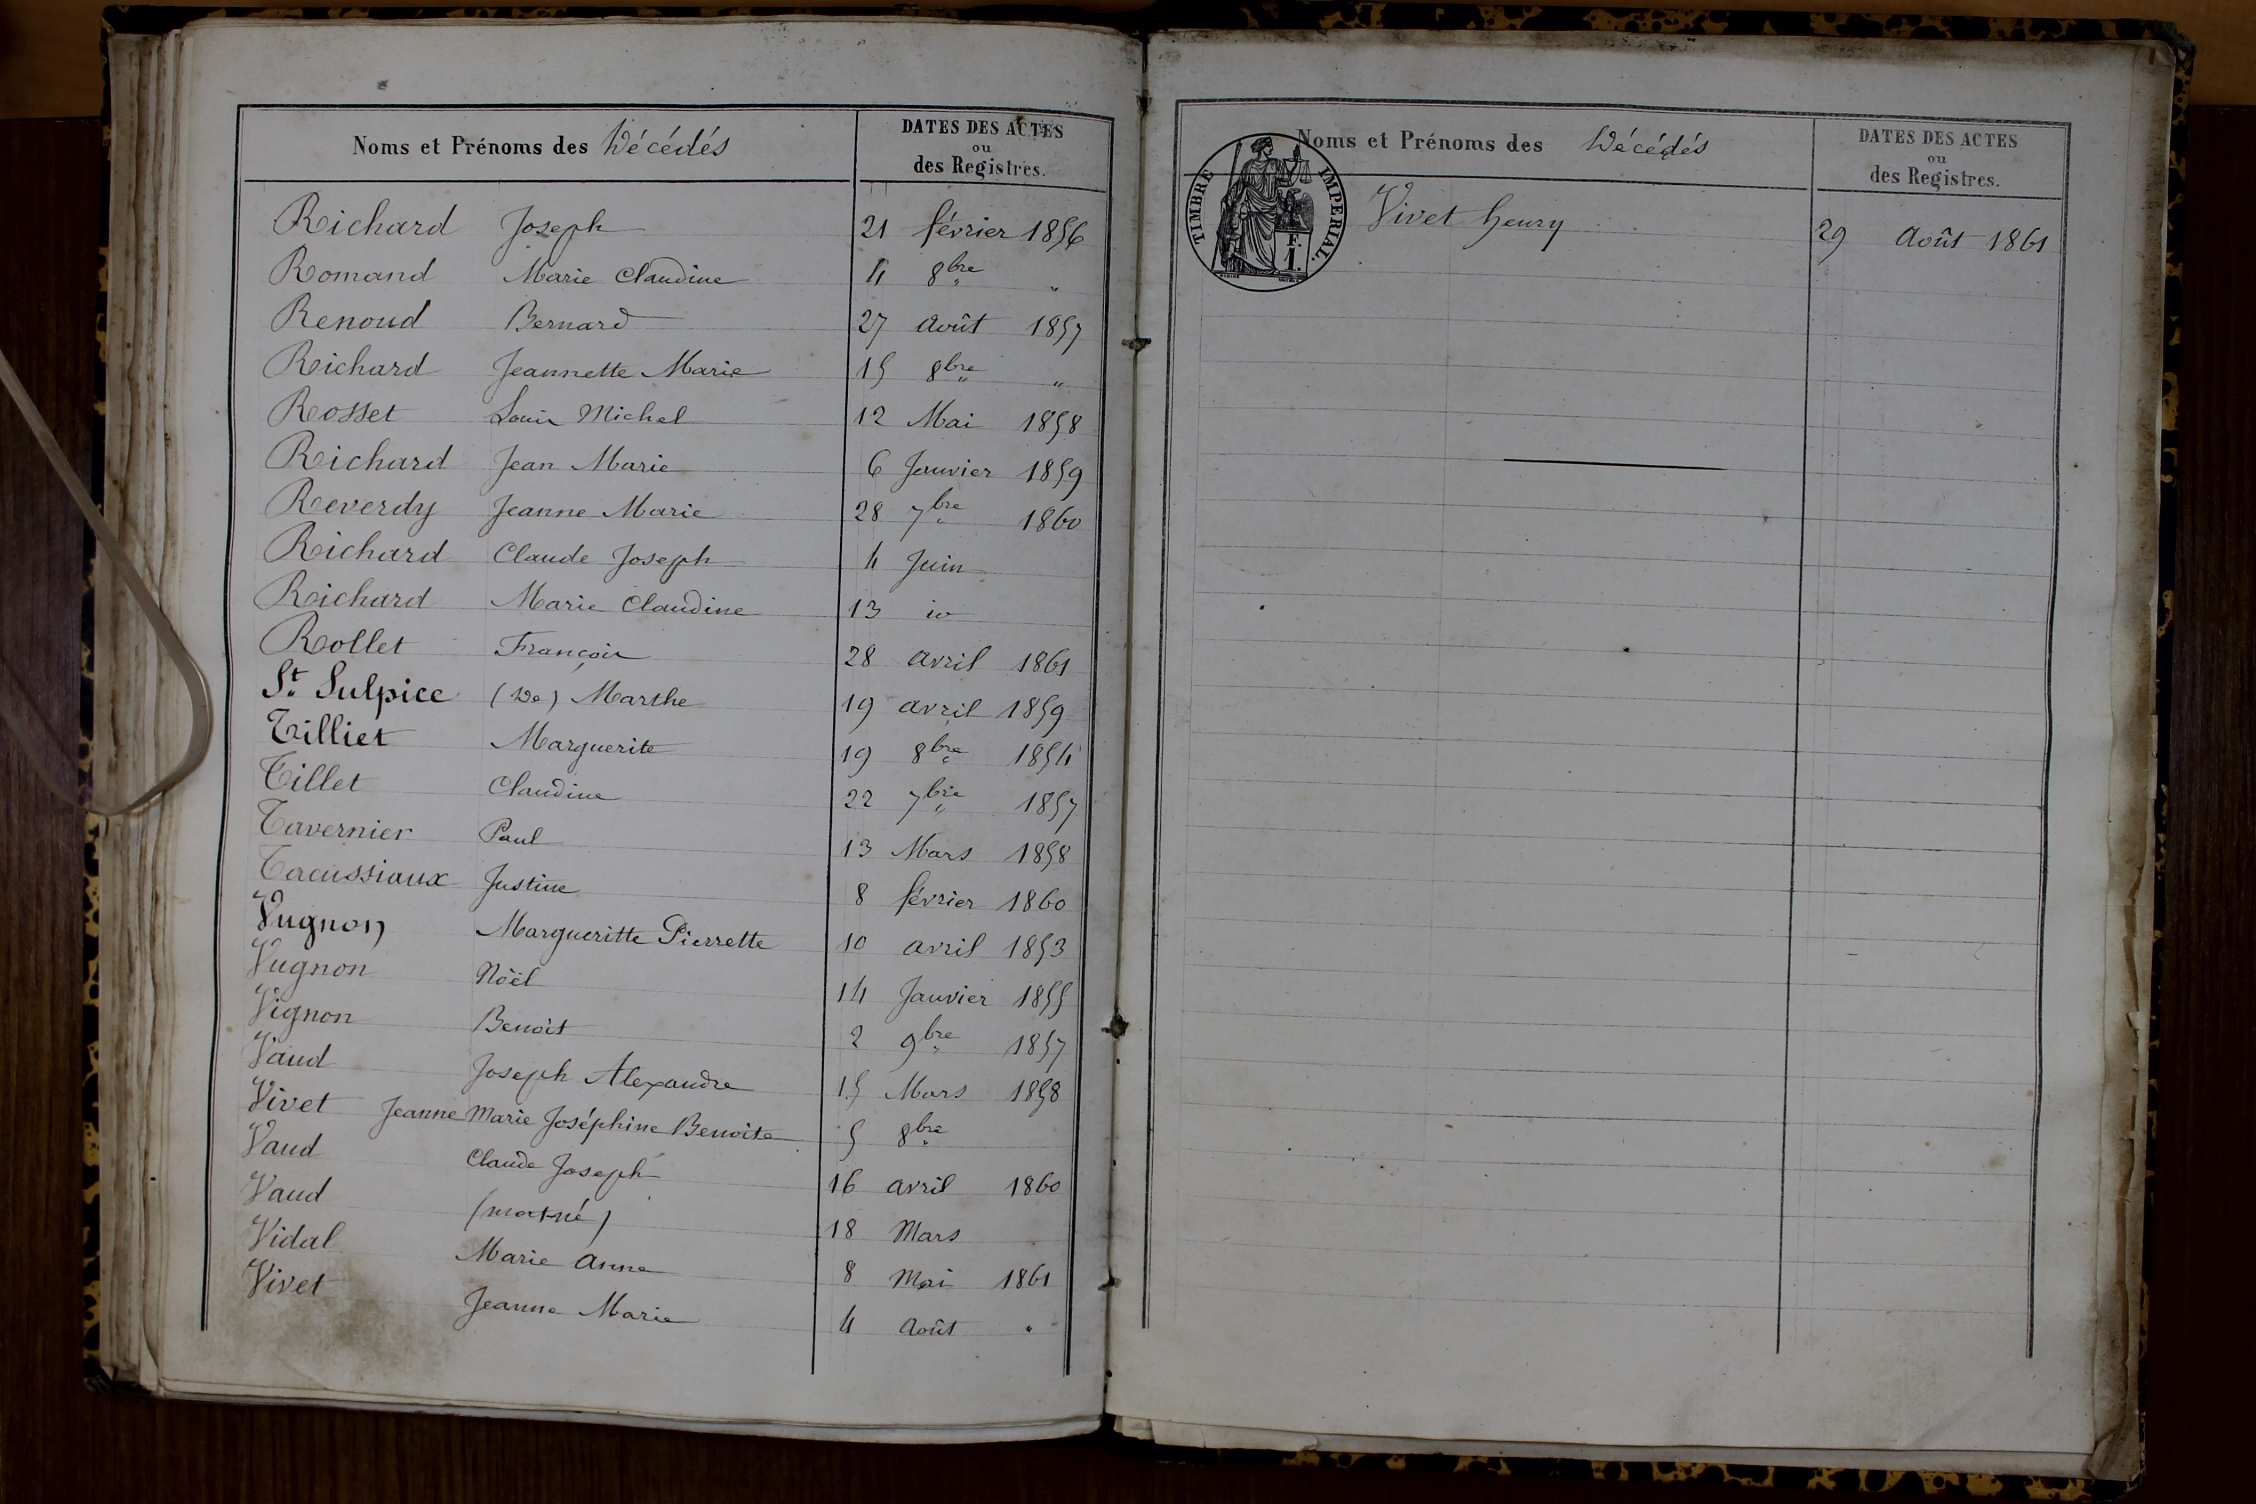 Noms et Prénoms des Décédés
DATES DES ACTES
ou
des Registres.
Richard Joseph 21 février 1856
Romand Marie Claudine 4 8bre "
Renoud Bernard 27 Août 1857
Richard Jeannette Marie 15 8bre "
Rosset Louis Michel 12 Mai 1858
Richard Jean Marie 6 Janvier 1859
Reverdy Jeanne Marie 28 7bre 1860
Richard Claude Joseph 4 Juin
Richard Marie Claudine 13 id
Rollet François 28 avril 1861
St Sulpice (De) Marthe 19 avril 1859
Tilliet Marguerite 19 8bre 1854
Tillet Claudine 22 7bre 1857
Tavernier Paul 13 Mars 1858
Tacussiaux Justine 8 février 1860
Vugnon Margueritte Pierrette 10 avril 1853
Vugnon Noël 14 Janvier 1855
Vignon Benoit 2 9bre 1857
Vaud Joseph Alexandre 15 Mars 1858
Vivet Jeanne Marie Joséphine Benoite 5 8bre
Vaud Claude Joseph 16 avril 1860
Vaud (mort-né) 18 Mars
Vidal Marie Anne 8 Mai 1861
Vivet Jeanne Marie 4 Août "
Noms et Prénoms des Décédés
DATES DES ACTES
ou
des Registres.
TIMBRE IMPERIAL.
F.
1.
Vivet henry 29 Août 1861